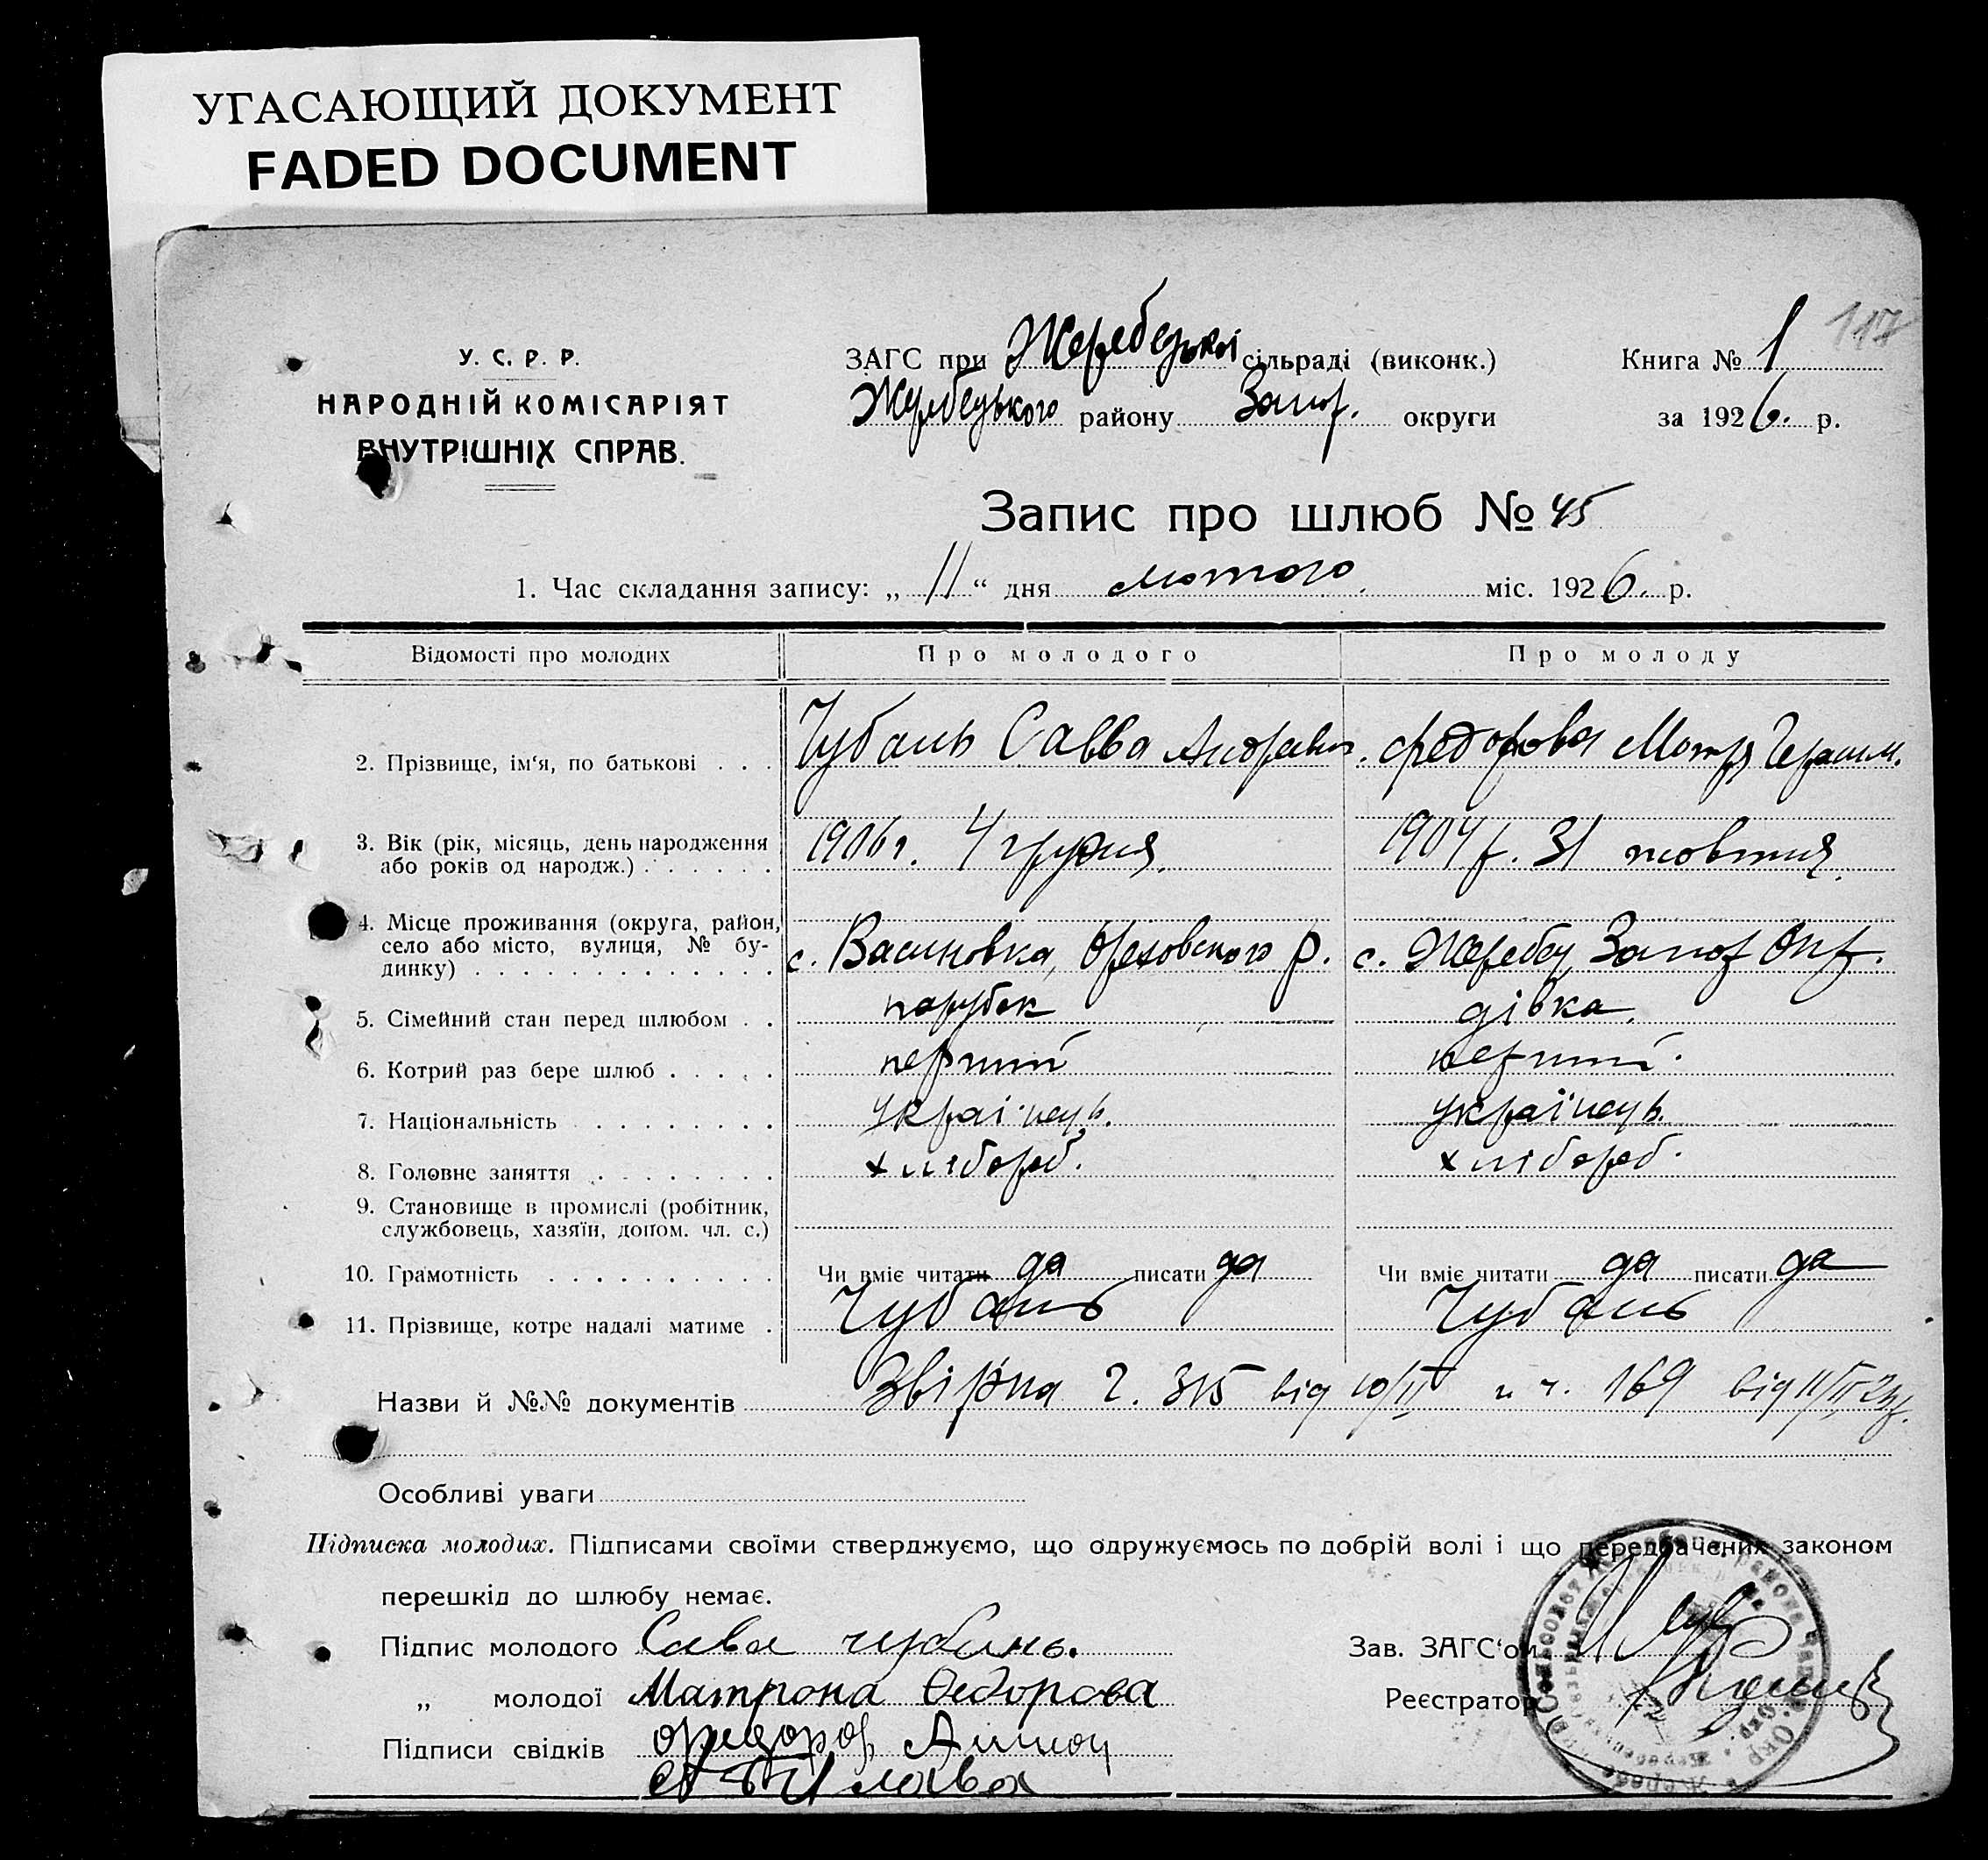 УГАСАЮЩИЙ ДОКУМЕНТ
FADED DOCUMENT
117
У. С. Р. Р.
НАРОДНІЙ КОМІСАРІЯТ
ВНУТРІШНІХ СПРАВ.
ЗАГС при Жеребецькоі сільраді (виконк.)
Жеребецького району Запор. округи
Книга № 1
за 1926. р.
Запис про шлюб № 45
1. Час складання запису: „ 11 “ дня лютого міс. 1926. р.
Відомості про молодих Про молодого Про молоду
2. Прізвище, ім‘я, по батькові . . . Чубань Савва Андреевич. Федорова Мотря Герасим.
3. Вік (рік, місяць, день народження
або років од народж.) . . . . . . 1906 г. 4 грудня. 1904 р. 31 жовтня.
4. Місце проживання (округа, район,
село або місто, вулиця, № бу-
динку) . . . . . . . . . . . . . с. Васиновка, Ореховского р. с. Жеребец Запор Окр.
5. Сімейний стан перед шлюбом . . парубок дівка.
6. Котрий раз бере шлюб . . . . . перший перший.
7. Національність . . . . . . . . . українець. українець.
8. Головне заняття . . . . . . . . хлібороб. хлібороб.
9. Становище в промислі (робітник,
службовець, хазяїн, допом. чл. с.)
10. Грамотність . . . . . . . . . . Чи вміє читати да писати да Чи вміє читати да писати да
11. Прізвище, котре надалі матиме . Чубань Чубань
Назви й №№ документів 315 від 10/II и ч. 169 від 11/II
Особливі уваги
Підписка молодих. Підписами своїми стверджуємо, що одружуємось по добрій волі і що передбачених законом
перешкід до шлюбу немає.
Підпис молодого Сава чубань.
Зав. ЗАГС‘ом
„ молодої Матрона Федорова
Реєстратор
Підписи свідків